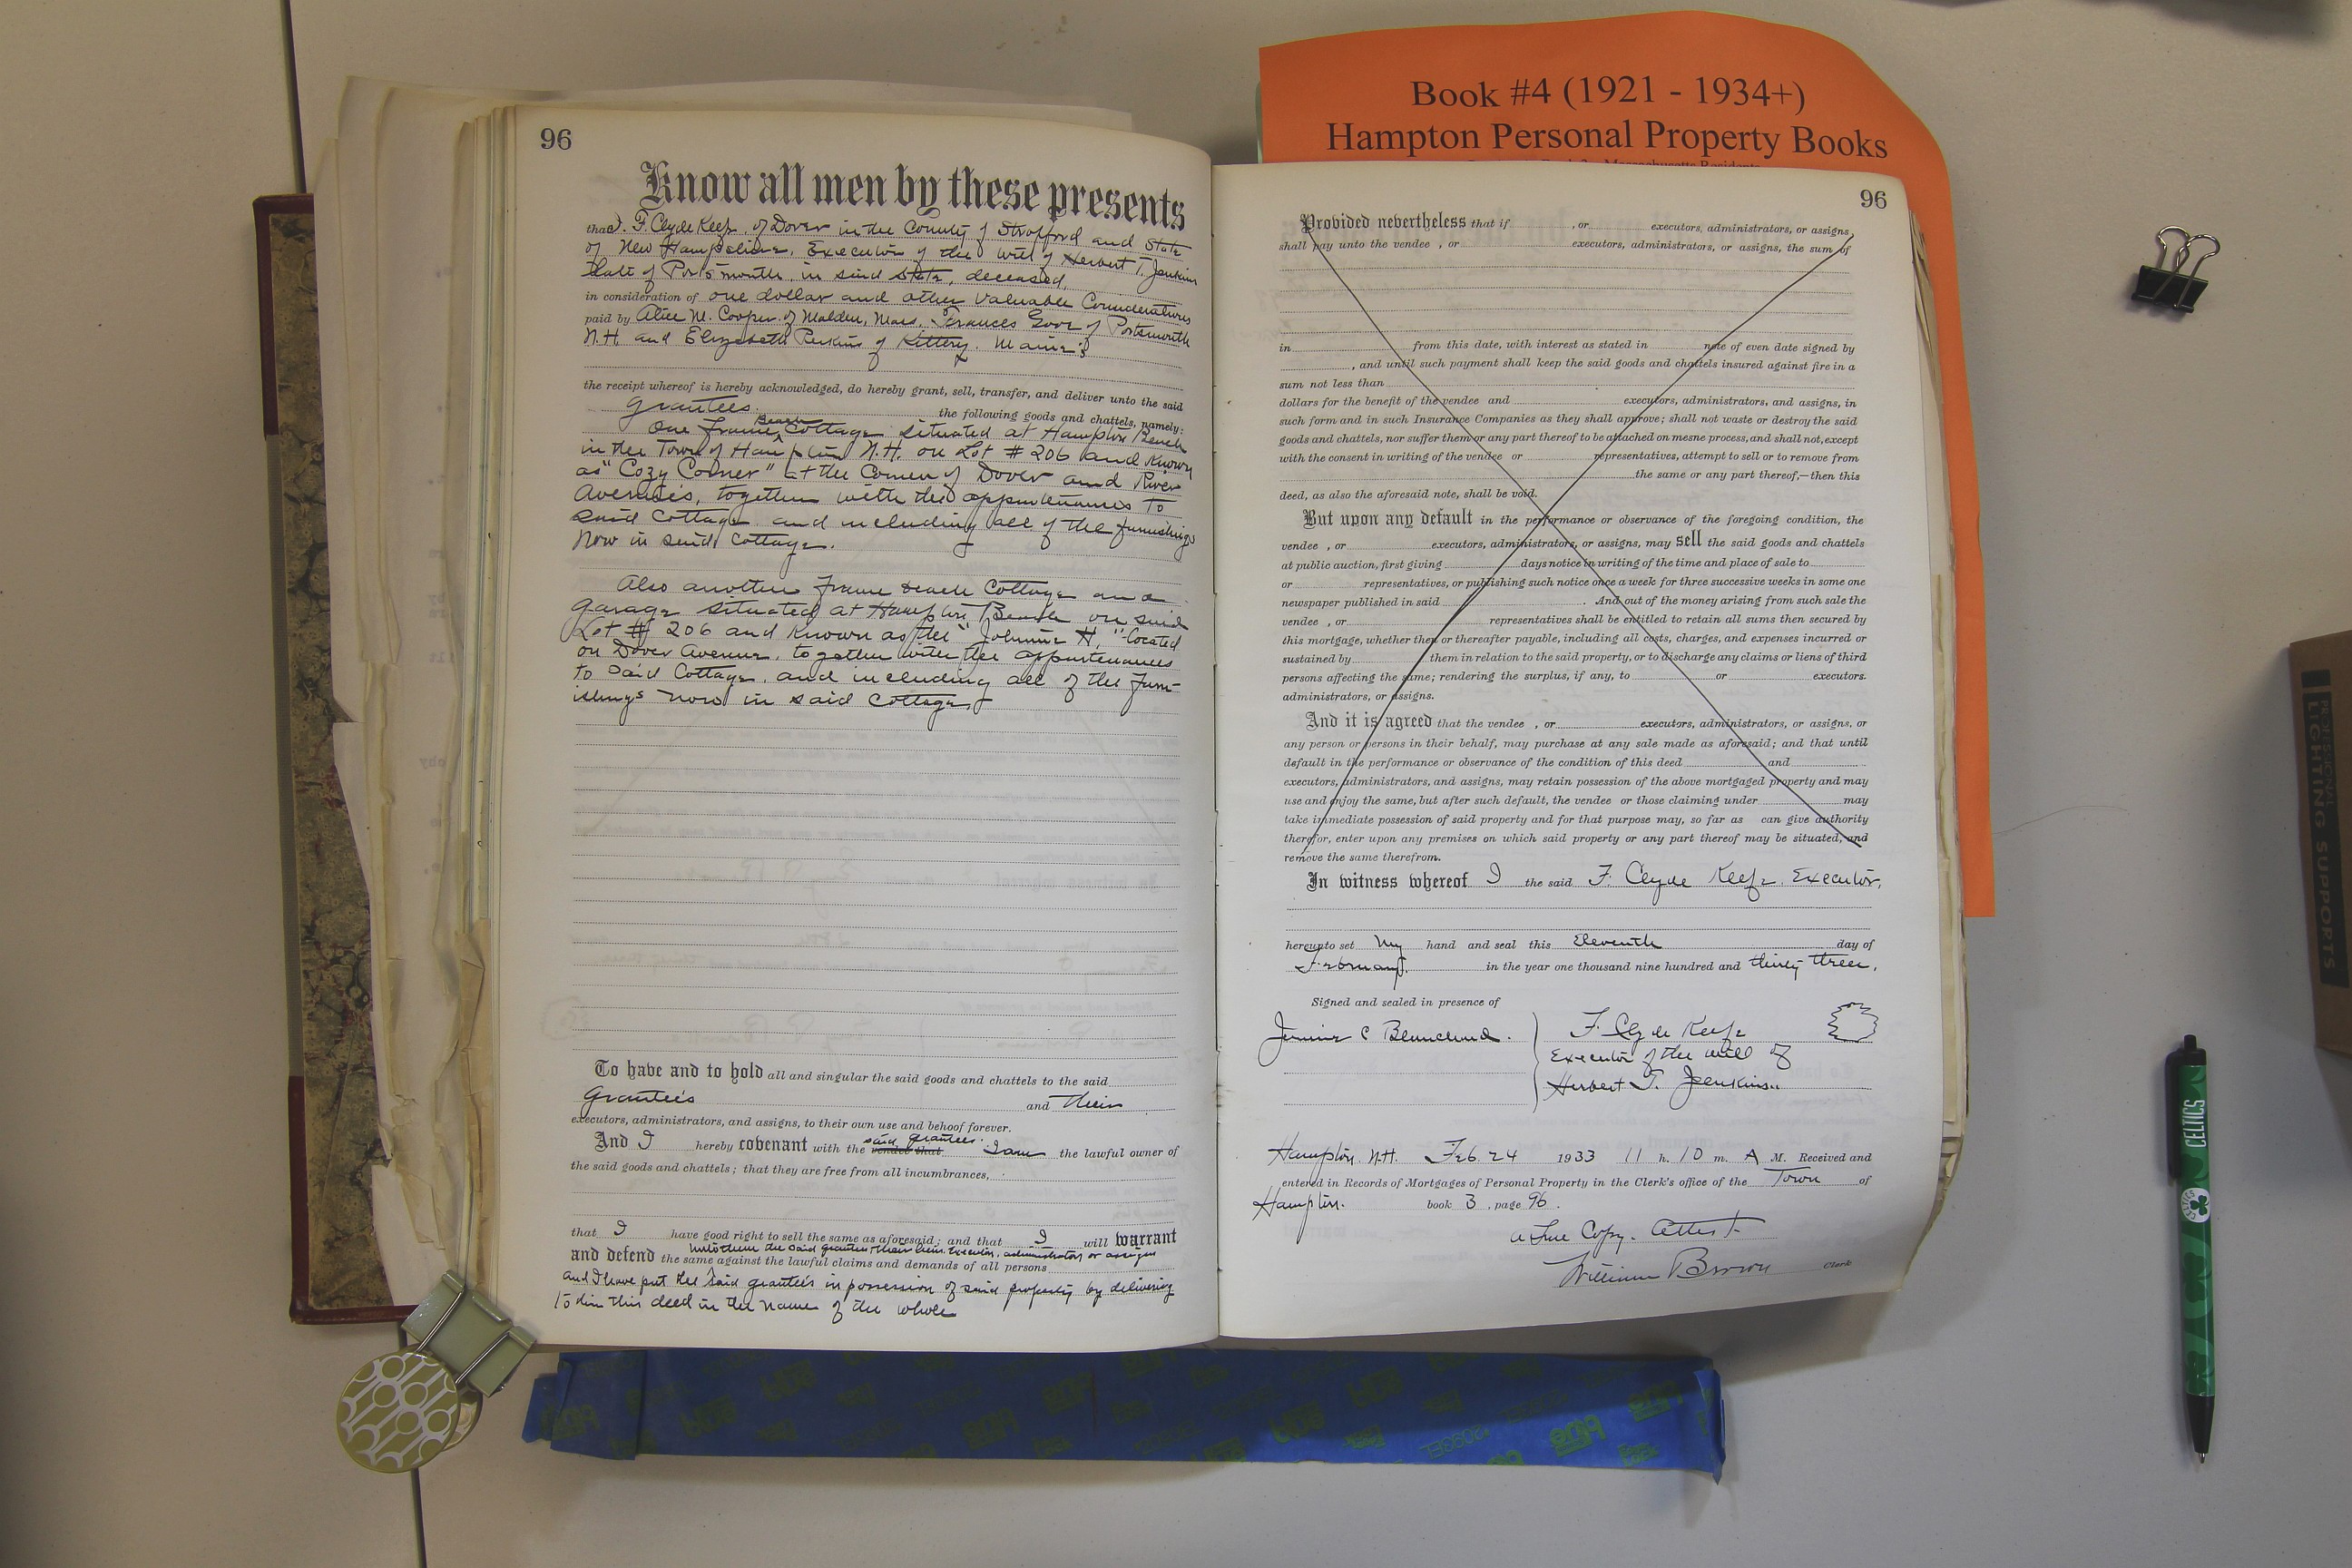 Book #4 (1921 - 1934+)
Hampton Personal Property Books
96
Know all men by these presents
that I. F. Clyde Keefe, of Dover in the County of Strafford and State
of New Hampshire, Executor of the will of Herbert T. Jenkins
late of Portsmouth, in said State, deceased,
in consideration of one dollar and other valuable Considerations
paid by Alice M. Cooper of Malden, Mass, Frances Gove of Portsmouth
N.H. and Elizabeth Perkins of Kittery, Maine
the receipt whereof is hereby acknowledged, do hereby grant, sell, transfer, and deliver unto the said
Grantees the following goods and chattels, namely:
One frame Beach Cottage situated at Hampton Beach
in the Town of Hampton N.H. on Lot # 206 and Known
as "Cozy Corner" at the Corner of Dover and River
Avenues, together with the appurtenances to
said Cottage and including all of the furnishings
now in said Cottage.
Also another Frame Beach Cottage and
Garage situated at Hampton Beach on said
Lot # 206 and Known as the "Johnnie H," located
on Dover Avenue, together with the appurtenances
to said Cottage, and including all of the furn-
ishings now in said Cottage
To have and to hold all and singular the said goods and chattels to the said
Grantees and their
executors, administrators, and assigns, to their own use and behoof forever.
And I hereby covenant with the vendee that said grantees. I am the lawful owner of
the said goods and chattels; that they are free from all incumbrances,
that I have good right to sell the same as aforesaid; and that I will warrant
unto them the said grantees, their heirs, executors, administrators or assigns
and defend the same against the lawful claims and demands of all persons
and I have put the said grantees in possession of said property by delivering
to him this deed in the name of the whole
96
Provided nevertheless that if , or executors, administrators, or assigns,
shall pay unto the vendee , or executors, administrators, or assigns, the sum of
in from this date, with interest as stated in note of even date signed by
, and until such payment shall keep the said goods and chattels insured against fire in a
sum not less than
dollars for the benefit of the vendee and executors, administrators, and assigns, in
such form and in such Insurance Companies as they shall approve; shall not waste or destroy the said
goods and chattels, nor suffer them or any part thereof to be attached on mesne process, and shall not, except
with the consent in writing of the vendee or representatives, attempt to sell or to remove from
the same or any part thereof,—then this
deed, as also the aforesaid note, shall be void.
But upon any default in the performance or observance of the foregoing condition, the
vendee , or executors, administrators, or assigns, may sell the said goods and chattels
at public auction, first giving days notice in writing of the time and place of sale to
or representatives, or publishing such notice once a week for three successive weeks in some one
newspaper published in said . And out of the money arising from such sale the
vendee , or representatives shall be entitled to retain all sums then secured by
this mortgage, whether then or thereafter payable, including all costs, charges, and expenses incurred or
sustained by them in relation to the said property, or to discharge any claims or liens of third
persons affecting the same; rendering the surplus, if any, to or executors.
administrators, or assigns.
And it is agreed that the vendee , or executors, administrators, or assigns, or
any person or persons in their behalf, may purchase at any sale made as aforesaid; and that until
default in the performance or observance of the condition of this deed and
executors, administrators, and assigns, may retain possession of the above mortgaged property and may
use and enjoy the same, but after such default, the vendee or those claiming under may
take immediate possession of said property and for that purpose may, so far as can give authority
therefor, enter upon any premises on which said property or any part thereof may be situated, and
remove the same therefrom.
In witness whereof I the said F. Clyde Keefe, Executor,
hereunto set my hand and seal this Eleventh day of
February in the year one thousand nine hundred and thirty three.
Signed and sealed in presence of
Jennie C Blanchard. F. Clyde Keefe
Executor of the will of
Herbert T. Jenkins.
Hampton N.H. Feb. 24 1933 11 h. 10 m. A M. Received and
entered in Records of Mortgages of Personal Property in the Clerk's office of the Town of
Hampton. book 3 , page 96 .
a true Copy. Attest
William Brown Clerk
CELTICS
CELTICS
PROFESSIONAL
LIGHTING SUPPORTS